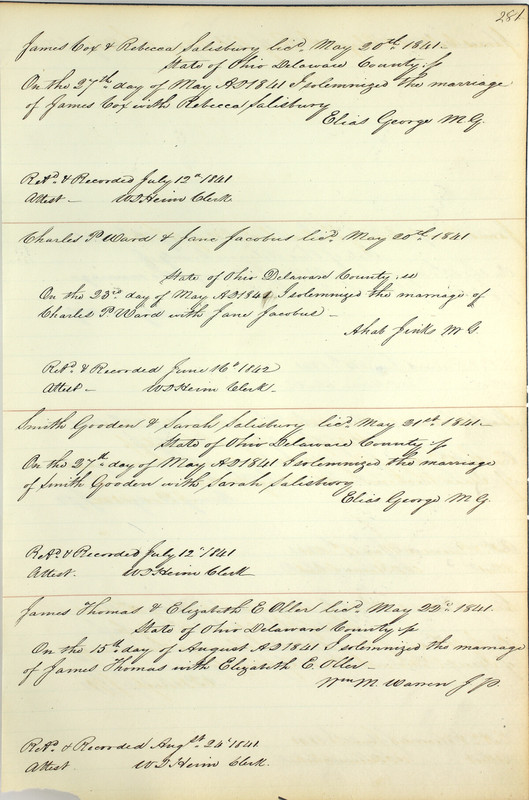 281
James Cox & Rebecca Salisbury licd. May 20th 1841.
State of Ohio Delaware County
On the 27th day of May AD 1841 I solemnized the marriage
of James Cox with Rebecca Salisbury
Elias George M.G.
Retd. & Recorded July 12th 1841
Attest - W D Heim Clerk
Charles P Ward & Jane Jacobus licd. May 20th 1841
State of Ohio Delaware County ss
On the 23rd day of May AD 1841 I solemnized the marriage of
Charles P Ward with Jane Jacobus -
Ahab Jinks M G.
Retd. & Recorded June 16th 1842
Attest - W D Heim Clerk -
Smith Gooden & Sarah Salisbury licd. May 21st 1841 -
State of Ohio Delaware County
On the 27th day of May AD 1841 I solemnized the marriage
of Smith Gooden with Sarah Salisbury
Elias George M G
Retd. & Recorded July 12 1841
Attest. W D Heim Clerk
James Thomas & Elizabeth E Oller licd. May 22nd 1841.
State of Ohio Delaware County
On the 15th day of August AD 1841 I solemnized the marriage
of James Thomas with Elizabeth E. Oller -
Wm M. Warren J P.
Retd. & Recorded Augst. 24 1841
Attest W D Heim Clerk.